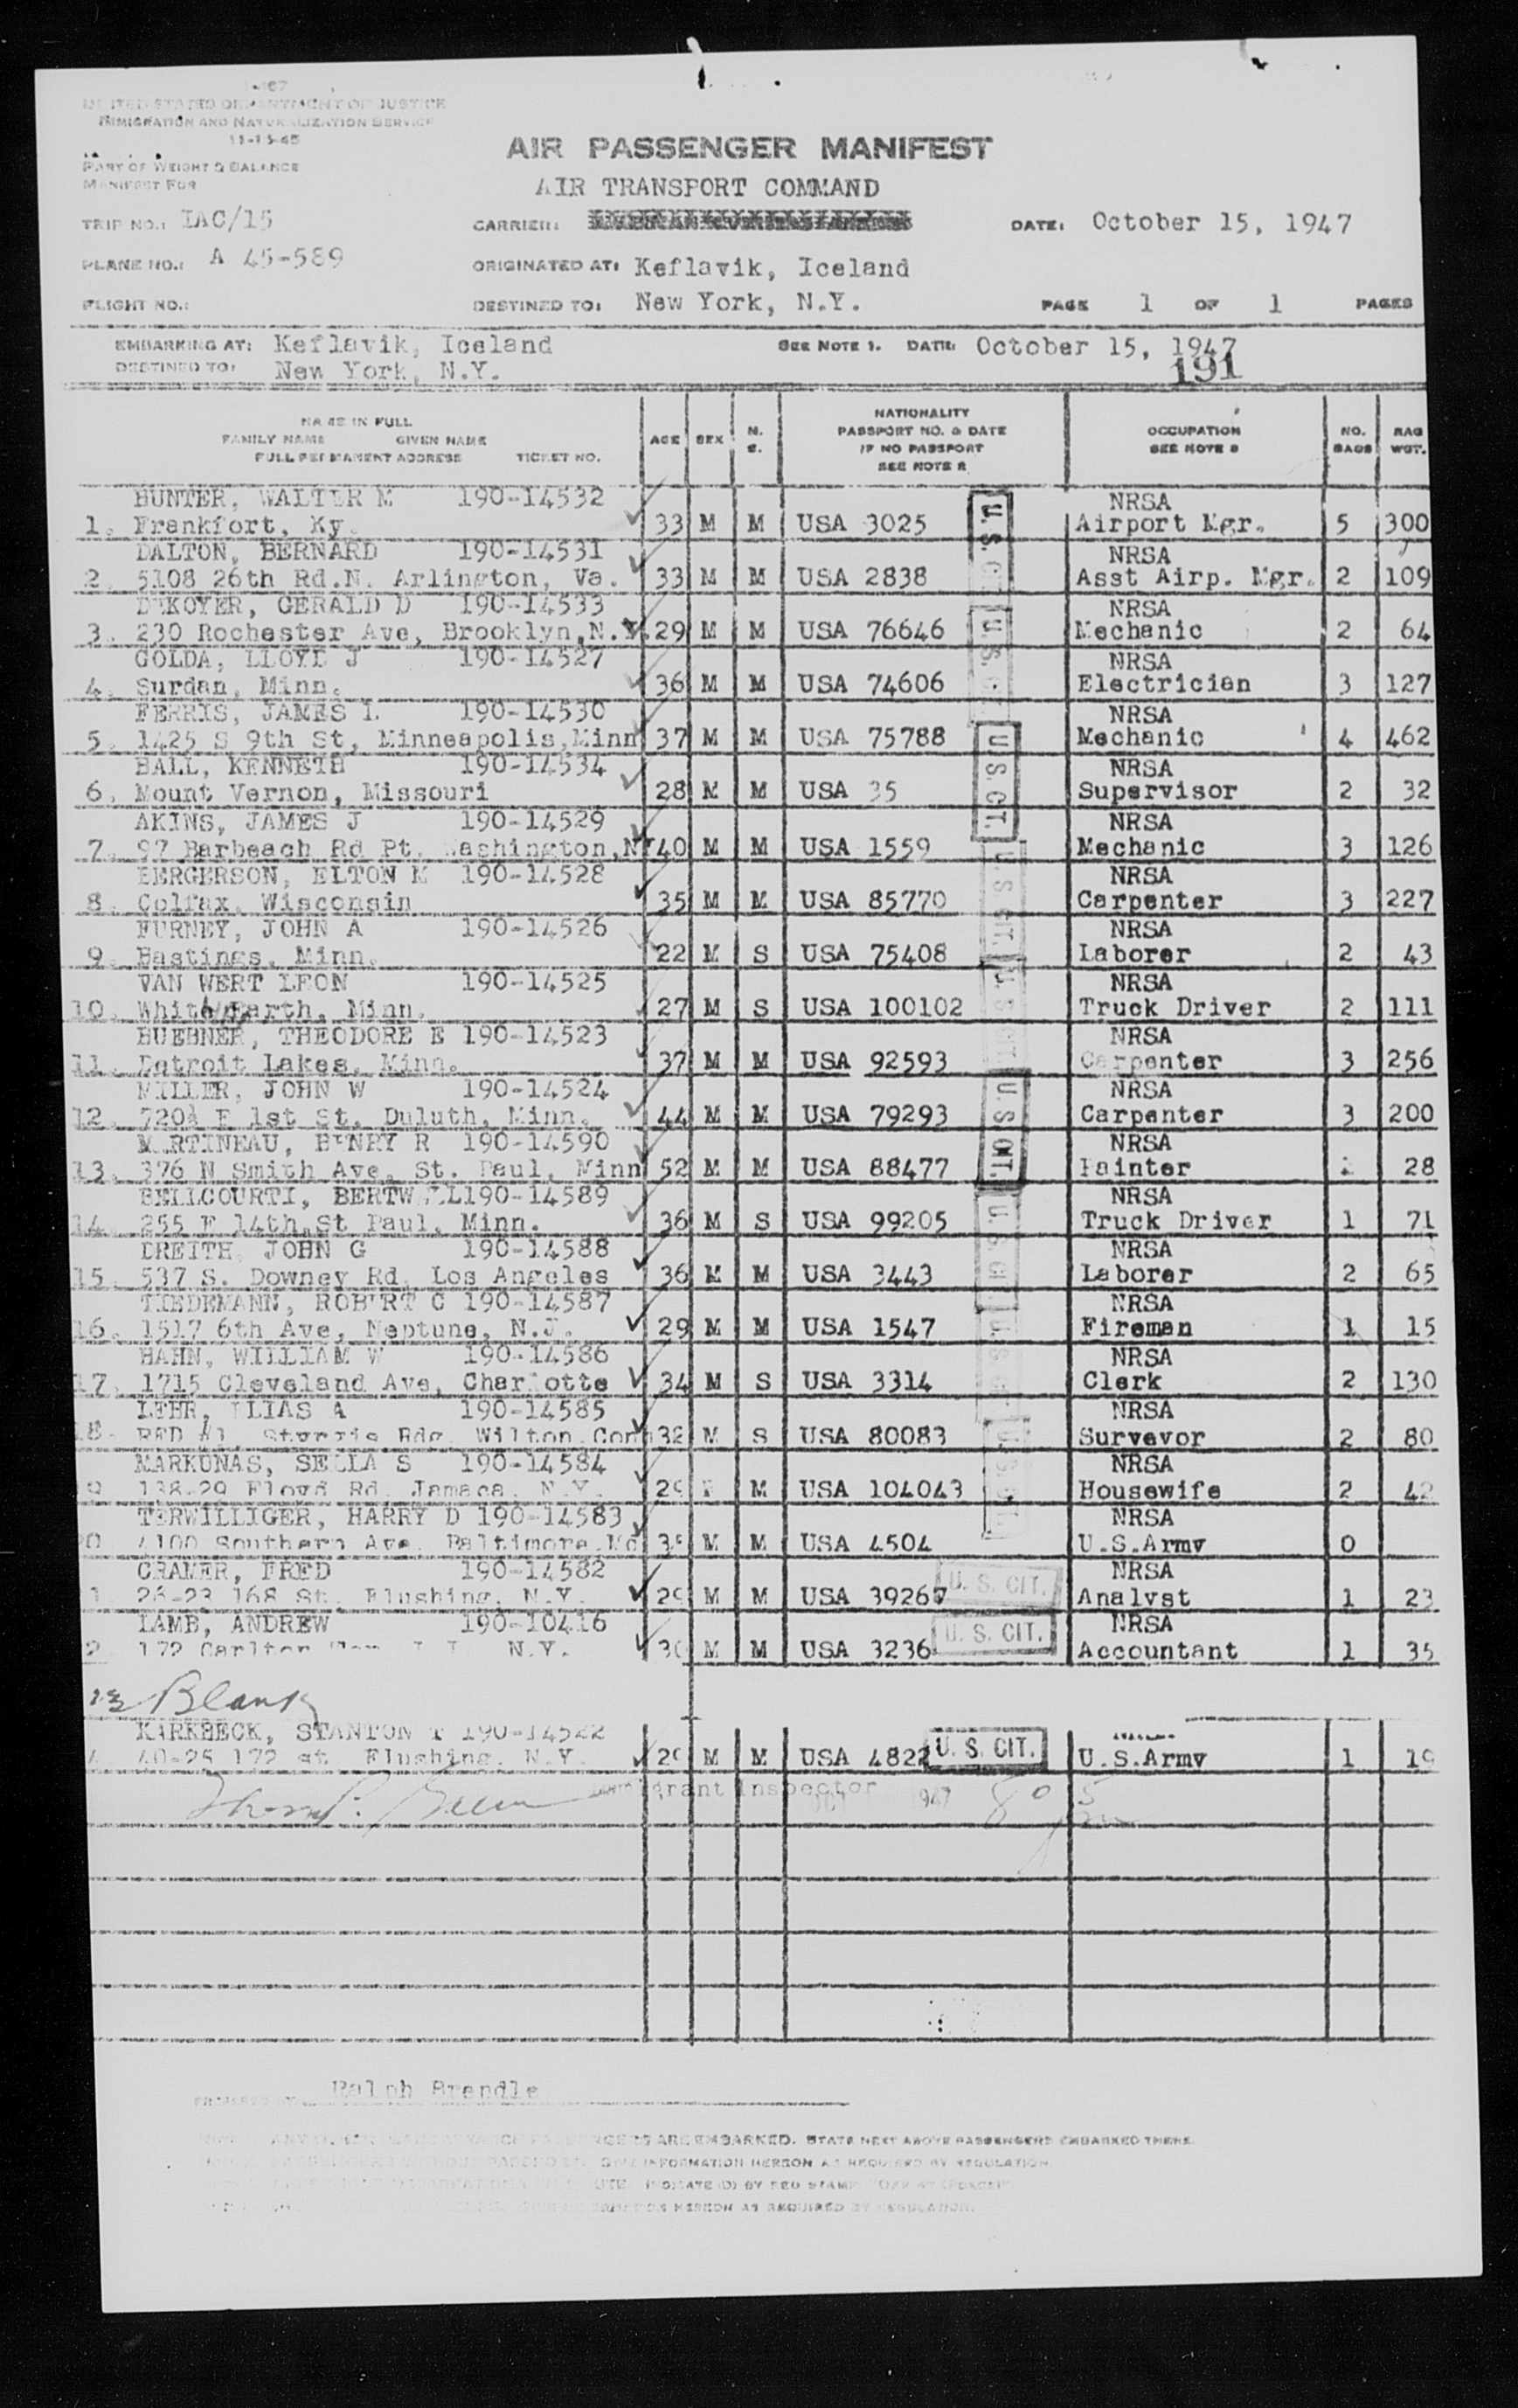 UNITED STATES DEPARTMENT OF JUSTICE
IMMIGRATION AND NATURALIZATION SERVICE
11-15-45
PART OF WEIGHT & BALANCE
MANIFEST FOR
AIR PASSENGER MANIFEST
AIR TRANSPORT COMMAND
TRIP NO.: IAC/15 CARRIER: DATE: October 15, 1947
PLANE NO.: A 45-589 ORIGINATED AT: Keflavik, Iceland
FLIGHT NO.: DESTINED TO: New York, N.Y. PAGE 1 OF 1 PAGES
EMBARKING AT: Keflavik, Iceland SEE NOTE 1. DATE: October 15, 1947
DESTINED TO: New York, N.Y. 191
NAME IN FULL
FAMILY NAME GIVEN NAME
FULL PERMANENT ADDRESS TICKET NO.
AGE SEX
NATIONALITY
PASSPORT NO. & DATE
IF NO PASSPORT
SEE NOTE
OCCUPATION
SEE NOTE
NO. BAGS
BAG WGT.
HUNTER, WALTER M 190-14532 NRSA
1. Frankfort, Ky. 33 M M USA 3025 Airport Mgr. 5 300
DALTON, BERNARD 190-14531 NRSA
2. 5108 26th Rd.N. Arlington, Va. 33 M M USA 2838 Asst Airp. Mgr. 2 109
DEKOYER, GERALD D 190-14533 NRSA
3. 230 Rochester Ave, Brooklyn,N.Y. 29 M M USA 76646 Mechanic 2 64
GOLDA, LLOYD J 190-14527 NRSA
4. Surdan, Minn. 36 M M USA 74606 Electrician 3 127
FERRIS, JAMES 190-14530 NRSA
5. 1425 S 9th St, Minneapolis,Minn 37 M M USA 75788 Mechanic 4 462
BALL, KENNETH 190-14534 NRSA
6. Mount Vernon, Missouri 28 M M USA 35 Supervisor 2 32
AKINS, JAMES J 190-14529 NRSA
7. 97 Barbeach Rd Pt. Washington,NY 40 M M USA 1559 Mechanic 3 126
BERGERSON, ELTON M 190-14528 NRSA
8. Colfax, Wisconsin 35 M M USA 85770 Carpenter 3 227
FURNEY, JOHN A 190-14526 NRSA
9. Hastings, Minn. 22 M S USA 75408 Laborer 2 43
VAN WERT LEON 190-14525 NRSA
10. White Earth, Minn. 27 M S USA 100102 Truck Driver 2 111
HUEBNER, THEODORE E 190-14523 NRSA
11. Detroit Lakes, Minn. 37 M M USA 92593 Carpenter 3 256
MILLER, JOHN W 190-14524 NRSA
12. 720½ E 1st St. Duluth, Minn. 44 M M USA 79293 Carpenter 3 200
MARTINEAU, HENRY R 190-14590 NRSA
13. 376 N Smith Ave, St. Paul, Minn 52 M M USA 88477 Painter 28
BELLCOURTI, BERTWELL190-14589 NRSA
14. 255 E 14th,St Paul, Minn. 36 M S USA 99205 Truck Driver 1 71
DREITH, JOHN G 190-14588 NRSA
15. 537 S. Downey Rd. Los Angeles 36 M M USA 3443 Laborer 2 65
TIEDEMANN, ROBERT C 190-14587 NRSA
16. 1517 6th Ave, Neptune, N.J. 29 M M USA 1547 Fireman 1 15
HAHN, WILLIAM W 190-14586 NRSA
17. 1715 Cleveland Ave, Charlotte 34 M S USA 3314 Clerk 2 130
LEHR, ELIAS A 190-14585 NRSA
8. RFD #1, Sturgis Rdg. Wilton Conn 32 M S USA 80083 Surveyor 2 80
MARKUNAS, SELLA S 190-14584 NRSA
9 138-29 Floyd Rd. Jamaca, N.Y. 29 F M USA 104043 Housewife 2 42
TERWILLIGER, HARRY D 190-14583 NRSA
0 4100 Southern Ave. Baltimore,Md 35 M M USA 4504 U.S.Army 0
CRAMER, FRED 190-14582 NRSA
1 26-23 168 St. Flushing, N.Y. 29 M M USA 39267 U. S. CIT. Analyst 1 23
LAMB, ANDREW 190-10416 NRSA
2 172 Carlton N.Y. 30 M M USA 3236 U. S. CIT. Accountant 1 35
23 Blank
KARKBECK, STANTON T 190-14522
4 40-25 172 st Flushing, N.Y. 29 M M USA 4822 U. S. CIT. U.S.Army 1 19
Immigrant Inspector 1947
PREPARED BY Ralph Brendle
ARE EMBARKED. STATE NEXT ABOVE PASSENGERS EMBARKED THERE.
INFORMATION HEREON AS REQUIRED BY REGULATION.
INDICATE (D) BY RED STAMP
HEREON AS REQUIRED BY REGULATION.